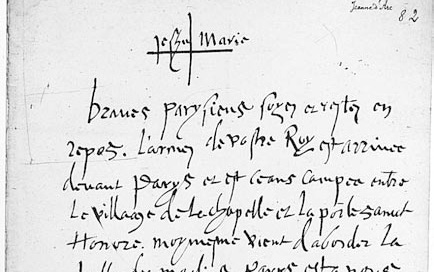 Jeanne d'Arc
82
jehs Marie
braves parysiens soyez et restez en
repos. l'armee de vostre Roy est arrivee
devant Parys et est ceans campee entre
le village de la chapelle et la porte sainct
Honore. moy mesme vient d'aborder la